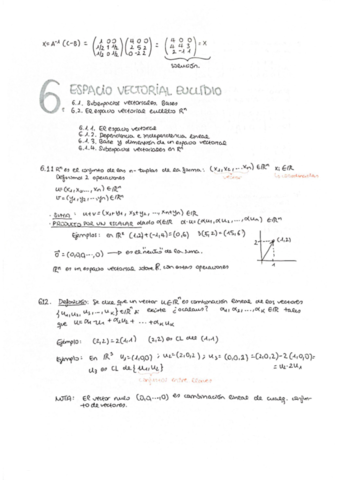 X = A⁻¹ (C-B) = (1 0 0 / 1/2 1 1/2 / 1/2 0 1/2) (4 0 0 / 2 5 2 / 0 -2 2) = (4 0 0 / 4 4 3 / 2 -1 2) = X
solución
6 ESPACIO VECTORIAL EUCLÍDEO
6.1. Subespacios vectoriales. Bases
6.2. El espacio vectorial euclídeo Rⁿ
6.1.1. El espacio vectorial
6.1.2. Dependencia e independencia lineal
6.1.3. Base y dimensión de un espacio vectorial
6.1.4. Subespacios vectoriales en Rⁿ
6.1.1 Rⁿ es el conjunto de las n-tuplas de la forma: (x₁, x₂, ..., xₙ) ∈ Rⁿ xᵢ ∈ R
Definimos 2 operaciones
u = (x₁, x₂, ..., xₙ) ∈ Rⁿ
v = (y₁, y₂, ... yₙ) ∈ Rⁿ
· SUMA: u+v = (x₁+y₁, x₂+y₂, ..., xₙ+yₙ) ∈ R
· PRODUCTO POR UN ESCALAR dado α ∈ R
Ejemplos: en R² (1,2)+(-1,4)=(0,6) 3(5,2)=(15,6)
2 (1,2)
1
0⃗ = (0,0,...,0) → es el "neutro" de la suma.
Rⁿ es un espacio vectorial sobre R con estas operaciones
6.1.2. Definición: Se dice que un vector u ∈ Rⁿ es combinación lineal de los vectores
{u₁, u₂, ..., uₖ} ∈ Rⁿ si existe escalares α₁, α₂, ..., αₖ ∈ R tales
que u = α₁u₁ + α₂u₂ + ... + αₖuₖ
Ejemplo: (2,2) = 2(1,1) (2,2) es CL de (1,1)
Ejemplo: En R³ u₁=(1,0,0) ; u₂=(2,0,2) ; u₃=(0,0,2) = (2,0,2) - 2(1,0,0) =
u₃ es CL de {u₁, u₂} = u₂-2u₁
NOTA: El vector nulo (0,0,...,0) es combinación lineal de cualq. conjun-
to de vectores.